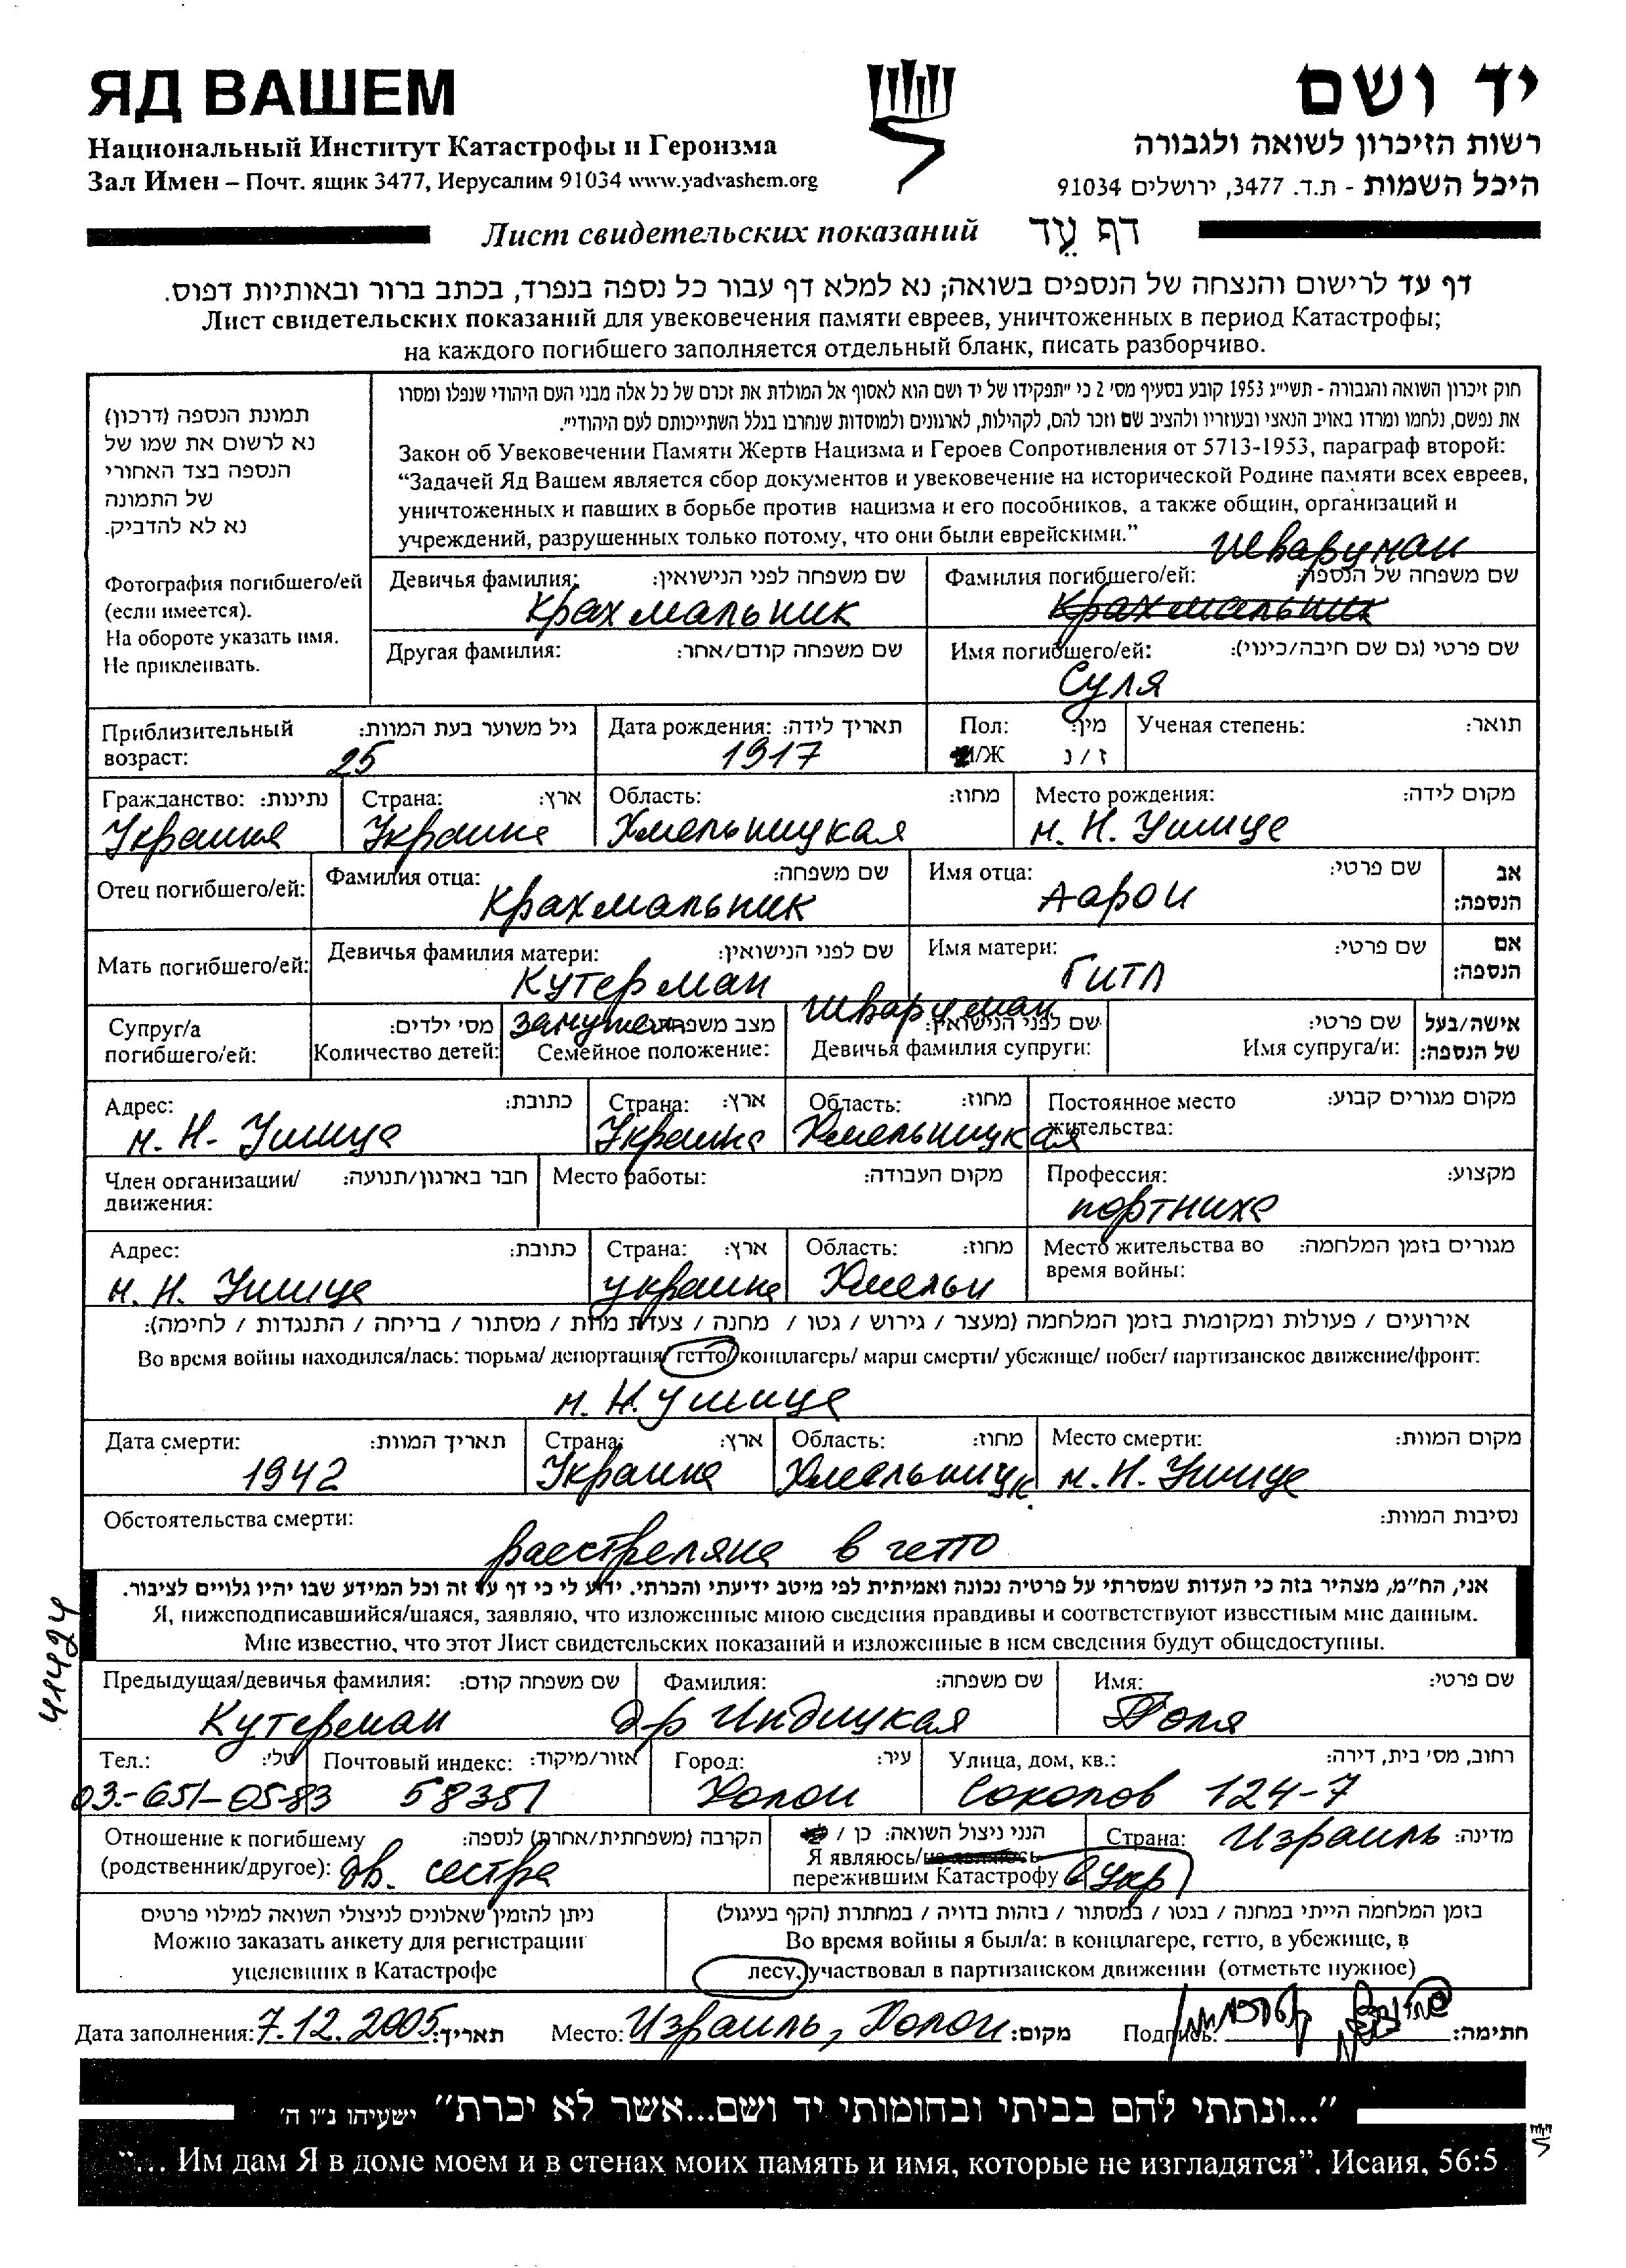 ЯД ВАШЕМ
יד ושם
Национальный Институт Катастрофы и Героизма
רשות הזיכרון לשואה ולגבורה
Зал Имен – Почт. ящик 3477, Иерусалим 91034 www.yadvashem.org
היכל השמות - ת.ד. 3477, ירושלים 91034
Лист свидетельских показаний דף עֵד
דף עד לרישום והנצחה של הנספים בשואה; נא למלא דף עבור כל נספה בנפרד, בכתב ברור ובאותיות דפוס.
Лист свидетельских показаний для увековечения памяти евреев, уничтоженных в период Катастрофы;
на каждого погибшего заполняется отдельный бланк, писать разборчиво.
תמונת הנספה (דרכון)
נא לרשום את שמו של
הנספה בצד האחורי
של התמונה
נא לא להדביק.
Фотография погибшего/ей
(если имеется).
На обороте указать имя.
Не приклеивать.
חוק זיכרון השואה והגבורה - תשי״ג 1953 קובע בסעיף מס׳ 2 כי ״תפקידו של יד ושם הוא לאסוף אל המולדת את זכרם של כל אלה מבני העם היהודי שנפלו ומסרו
את נפשם, נלחמו ומרדו באויב הנאצי ובעוזריו ולהציב שם וזכר להם, לקהילות, לארגונים ולמוסדות שנחרבו בגלל השתייכותם לעם היהודי״.
Закон об Увековечении Памяти Жертв Нацизма и Героев Сопротивления от 5713-1953, параграф второй:
“Задачей Яд Вашем является сбор документов и увековечение на исторической Родине памяти всех евреев,
уничтоженных и павших в борьбе против нацизма и его пособников, а также общин, организаций и
учреждений, разрушенных только потому, что они были еврейскими.”
Шварцман
Девичья фамилия: שם משפחה לפני הנישואין:
Крахмальник
Фамилия погибшего/ей: שם משפחה של הנספה:
Крахмальник
Другая фамилия: שם משפחה קודם/אחר:
Имя погибшего/ей: שם פרטי (גם שם חיבה/כינוי):
Суля
Приблизительный возраст: גיל משוער בעת המוות:
25
Дата рождения: תאריך לידה:
1917
Пол: מין:
М/Ж ז / נ
Ученая степень: תואר:
Гражданство: נתינות:
Украина
Страна: ארץ:
Украина
Область: מחוז:
Хмельницкая
Место рождения: מקום לידה:
м. Н. Ушица
Отец погибшего/ей:
Фамилия отца: שם משפחה:
Крахмальник
Имя отца: שם פרטי:
Аарон
אב הנספה:
Мать погибшего/ей:
Девичья фамилия матери: שם לפני הנישואין:
Кутерман
Имя матери: שם פרטי:
Гитл
אם הנספה:
Супруг/а погибшего/ей:
מס׳ ילדים:
Количество детей:
замужем
מצב משפחתי:
Семейное положение:
Шварцман
שם לפני הנישואין:
Девичья фамилия супруги:
שם פרטי:
Имя супруга/и:
אישה/בעל של הנספה:
Адрес: כתובת:
м. Н. Ушица
Страна: ארץ:
Украина
Область: מחוז:
Хмельницкая
Постоянное место жительства: מקום מגורים קבוע:
Член организации/ движения: חבר בארגון/תנועה:
Место работы: מקום העבודה:
Профессия: מקצוע:
портниха
Адрес: כתובת:
м. Н. Ушица
Страна: ארץ:
украина
Область: מחוז:
Хмельн
Место жительства во время войны: מגורים בזמן המלחמה:
אירועים / פעולות ומקומות בזמן המלחמה (מעצר / גירוש / גטו / מחנה / צעדת מוות / מסתור / בריחה / התנגדות / לחימה):
Во время войны находился/лась: тюрьма/ депортация/ гетто/ концлагерь/ марш смерти/ убежище/ побег/ партизанское движение/фронт:
м. Н. Ушица
Дата смерти: תאריך המוות:
1942
Страна: ארץ:
Украина
Область: מחוז:
Хмельницк.
Место смерти: מקום המוות:
м. Н. Ушица
Обстоятельства смерти: נסיבות המוות:
расстреляна в гетто
אני, הח״מ, מצהיר בזה כי העדות שמסרתי על פרטיה נכונה ואמיתית לפי מיטב ידיעתי והכרתי. ידוע לי כי דף עד זה וכל המידע שבו יהיו גלויים לציבור.
Я, нижеподписавшийся/шаяся, заявляю, что изложенные мною сведения правдивы и соответствуют известным мне данным.
Мне известно, что этот Лист свидетельских показаний и изложенные в нем сведения будут общедоступны.
41424
Предыдущая/девичья фамилия: שם משפחה קודם:
Кутерман
Фамилия: שם משפחה:
др Индицкая
Имя: שם פרטי:
Поля
Тел.: טל׳:
03-651-05-83
Почтовый индекс: אזור/מיקוד:
58351
Город: עיר:
Холон
Улица, дом, кв.: רחוב, מס׳ בית, דירה:
Соколов 124-7
Отношение к погибшему הקרבה (משפחתית/אחרת) לנספה:
(родственник/другое): дв. сестра
הנני ניצול השואה: כן /
Я являюсь/не являюсь
пережившим Катастрофу в Укр
Страна: Израиль מדינה:
ניתן להזמין שאלונים לניצולי השואה למילוי פרטים
Можно заказать анкету для регистрации
уцелевших в Катастрофе
בזמן המלחמה הייתי במחנה / בגטו / במסתור / בזהות בדויה / במחתרת (הקף בעיגול)
Во время войны я был/а: в концлагере, гетто, в убежище, в
лесу, участвовал в партизанском движении (отметьте нужное)
Дата заполнения: 7.12.2005 תאריך: Место: Израиль, Холон מקום: Подпись: חתימה:
״...ונתתי להם בביתי ובחומותי יד ושם...אשר לא יכרת״ ישעיהו נ״ו ה׳
“... Им дам Я в доме моем и в стенах моих память и имя, которые не изгладятся”. Исаия, 56:5